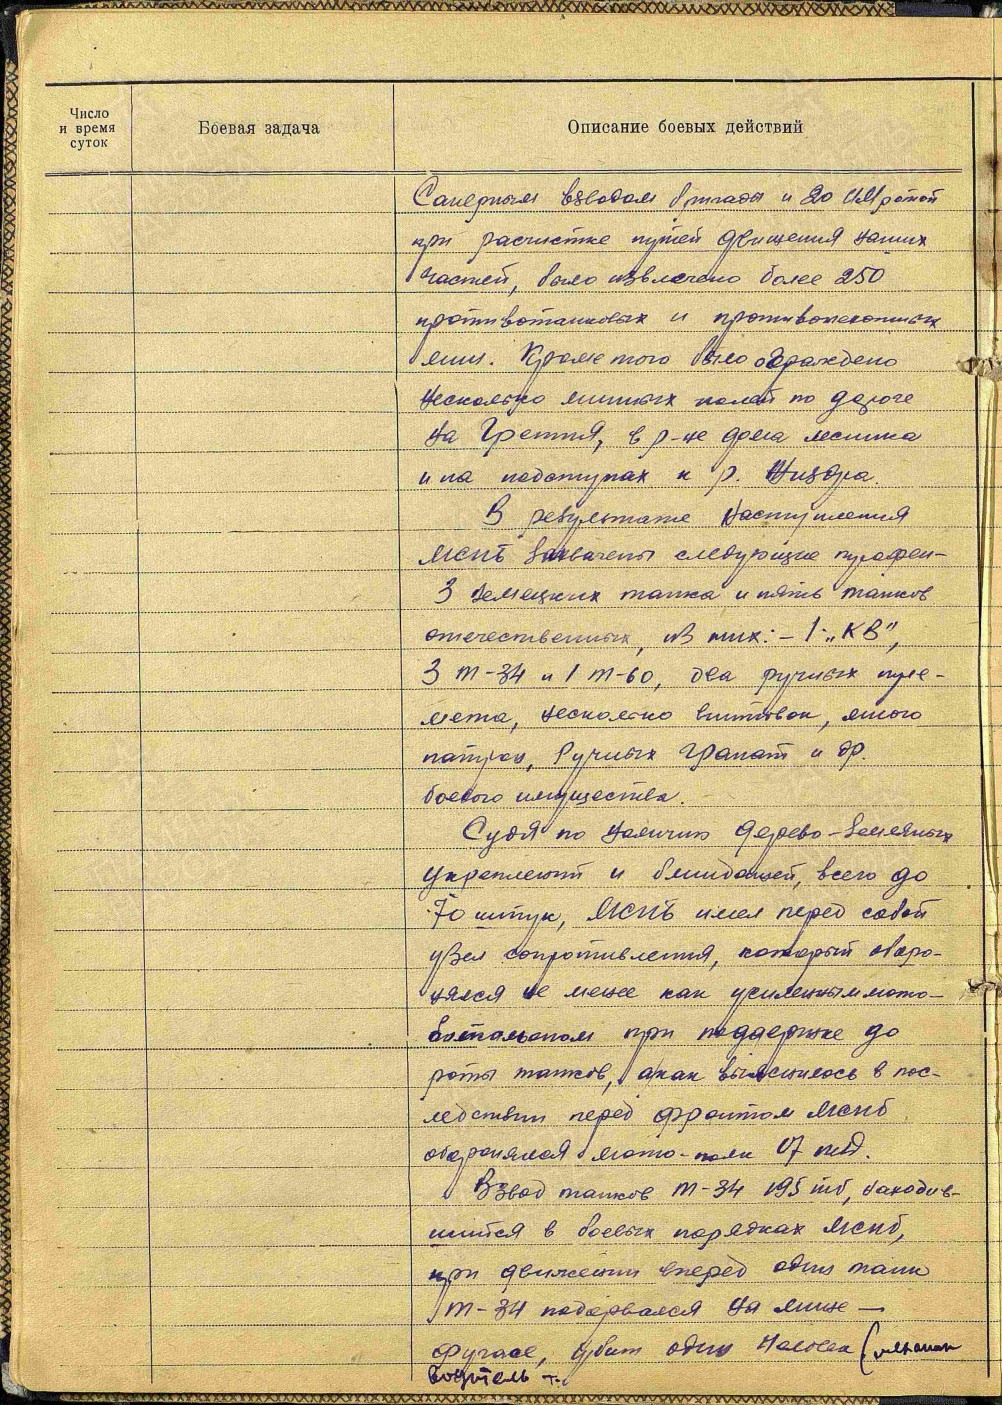 Число
и время
суток
Боевая задача
Описание боевых действий
Саперным взводом бригады и 20 ротой
при расчистке путей движения наших
частей, было извлечено более 250
противотанковых и противопехотных
мин. Кроме того было ограждено
несколько минных полей по дороге
на Гретня, в р-не дома лесника
и на подступах к р. Жиздра.
В результате наступления
МСПБ захвачены следующие трофеи-
3 немецких танка и пять танков
отечественных, из них: - 1 "КВ",
3 Т-34 и 1 Т-60, два ручных пуле-
мета, несколько винтовок, много
патрон, ручных гранат и др.
боевого имущества.
Судя по наличию дерево-земляных
укреплений и блиндажей, всего до
70 штук, МСПБ имел перед собой
узел сопротивления, который оборо-
нялся не менее как усиленным мото-
батальоном при поддержке до
роты танков, а как выяснилось в пос-
ледствии перед фронтом МСПБ
оборонялся мото-полк 17 тд.
Взвод танков Т-34 195 тб, находив-
шийся в боевых порядках МСПБ,
при движении вперед один танк
Т-34 подорвался на мине —
фугасе, убит один человек (механик
водитель